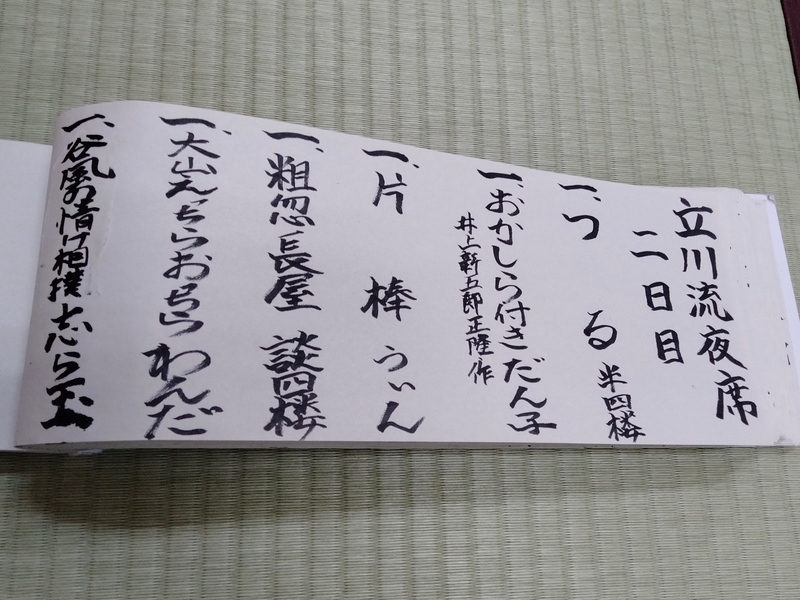 立川流夜席
二日目
一、つる 半四楼
一、おかしら付き だん子
井上新五郎正隆作
一、片棒 うぃん
一、粗忽長屋 談四楼
一、大山えぢらおぢら わんだ
一、谷風の情け相撲 志ら玉